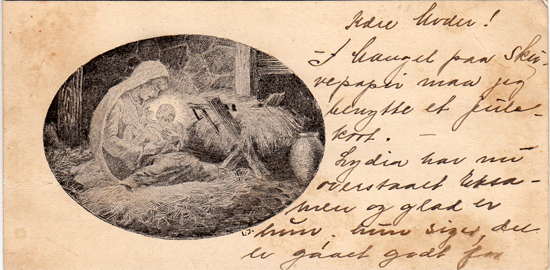 Kære Moder!
I Mangel paa Skri-
vepapir maa jeg
benytte et Jule-
kort. —
Lydia har nu
overstaaet Eksa-
men og glad er
hun, hun siger, det
er gaaet godt for